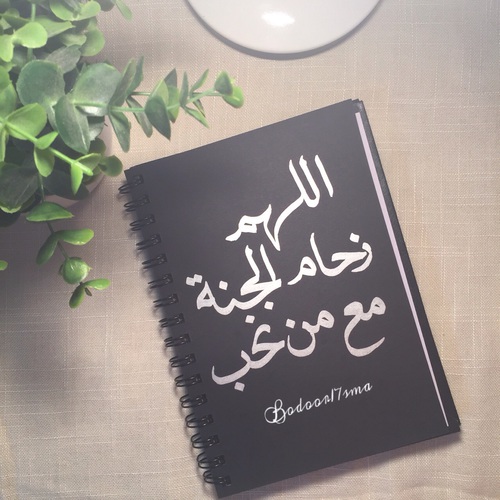 اللهم
زحام الجنة
مع من نحب
Bodoor17sma